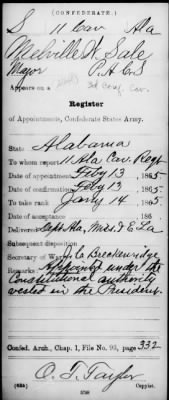 (CONFEDERATE.)
S 11 Cav Ala
Melville W. Sale
Major P.A.C.S
Appears on a 3d Conf. Cav.
Register
of Appointments, Confederate States Army.
State Alabama
To whom report 11 Ala Cav Regt
Date of appointment Feby 13, 1865
Date of confirmation Feby 13, 1865
To take rank Jany 14, 1865
Date of acceptance , 186
Delivered Dept Ala, Miss. & E La
Subsequent disposition
Secretary of War J. C. Breckenridge
Remarks: Appointed under the
Constitutional authority
vested in the President.
Confed. Arch., Chap. 1, File No. 93, page 332
O. T. Taylor
(635) Copyist.